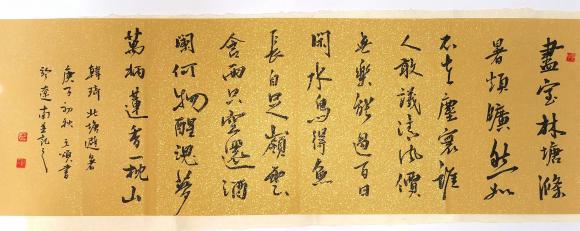 盡室林塘滌
暑煩曠然如
不在塵寰誰
人敢議清風價
無樂能過百日
閑水鳥得魚
長自足嶺雲
含雨只空還酒
闌何物醒魂夢
萬柄蓮香一枕山
韓琦北塘避暑
庚子初秋書
於遼南並記之